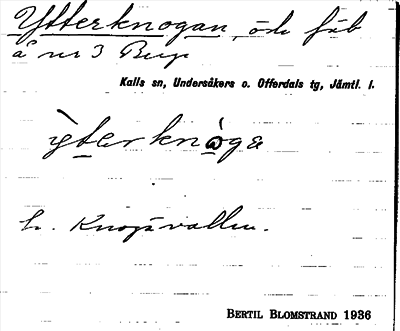 Ytterknogan, öde fäb
å nr 3 Berg
Kalls sn, Undersåkers o. Offerdals tg, Jämtl. l.
h. Knogsvallen.
BERTIL BLOMSTRAND 1936